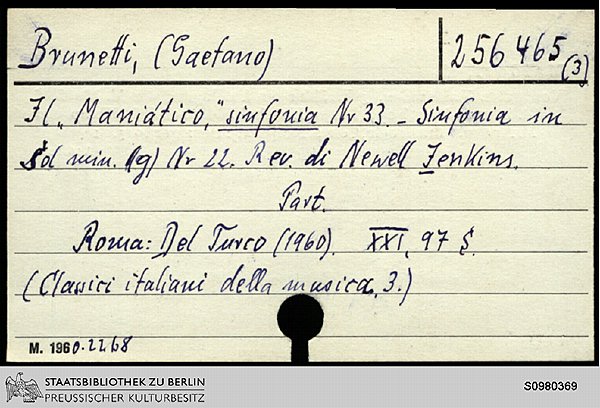 Brunetti, (Gaetano)
256 465 (3)
Il „Maniático," sinfonia Nr 33. – Sinfonia in
Sol min. (g) Nr 22. Rev. di Newell Jenkins.
Part.
Roma: Del Turco (1960). XXI, 97 S.
(Classici italiani della musica, 3.)
M. 1960.2268
STAATSBIBLIOTHEK ZU BERLIN
PREUSSISCHER KULTURBESITZ
S0980369